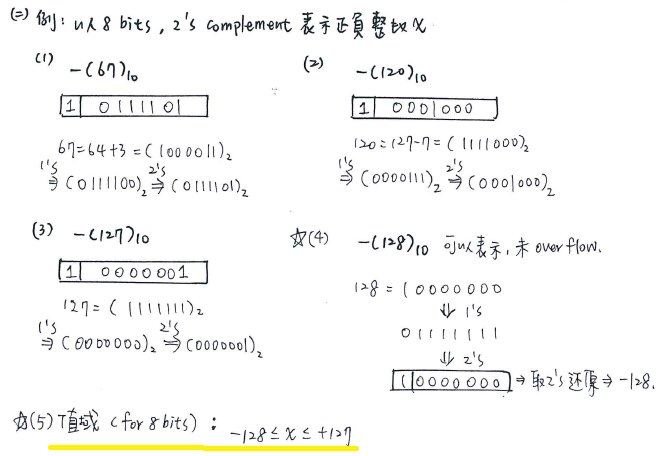 (二) 例: 以 8 bits, 2's complement 表示正負整數 X
(1) -(67)10
1 0111101
67=64+3=(1000011)2
1's ⇒ (0111100)2 2's ⇒ (0111101)2
(2) -(120)10
1 0001000
120=127-7=(1111000)2
1's ⇒ (0000111)2 2's ⇒ (0001000)2
(3) -(127)10
1 0000001
127=(1111111)2
1's ⇒ (0000000)2 2's ⇒ (0000001)2
☆(4) -(128)10 可以表示, 未 overflow.
128 = 10000000
⇓ 1's
01111111
⇓ 2's
1 0000000 ⇒ 取2's 还原 ⇒ -128.
☆(5) 值域 (for 8 bits) : -128 ≤ X ≤ +127